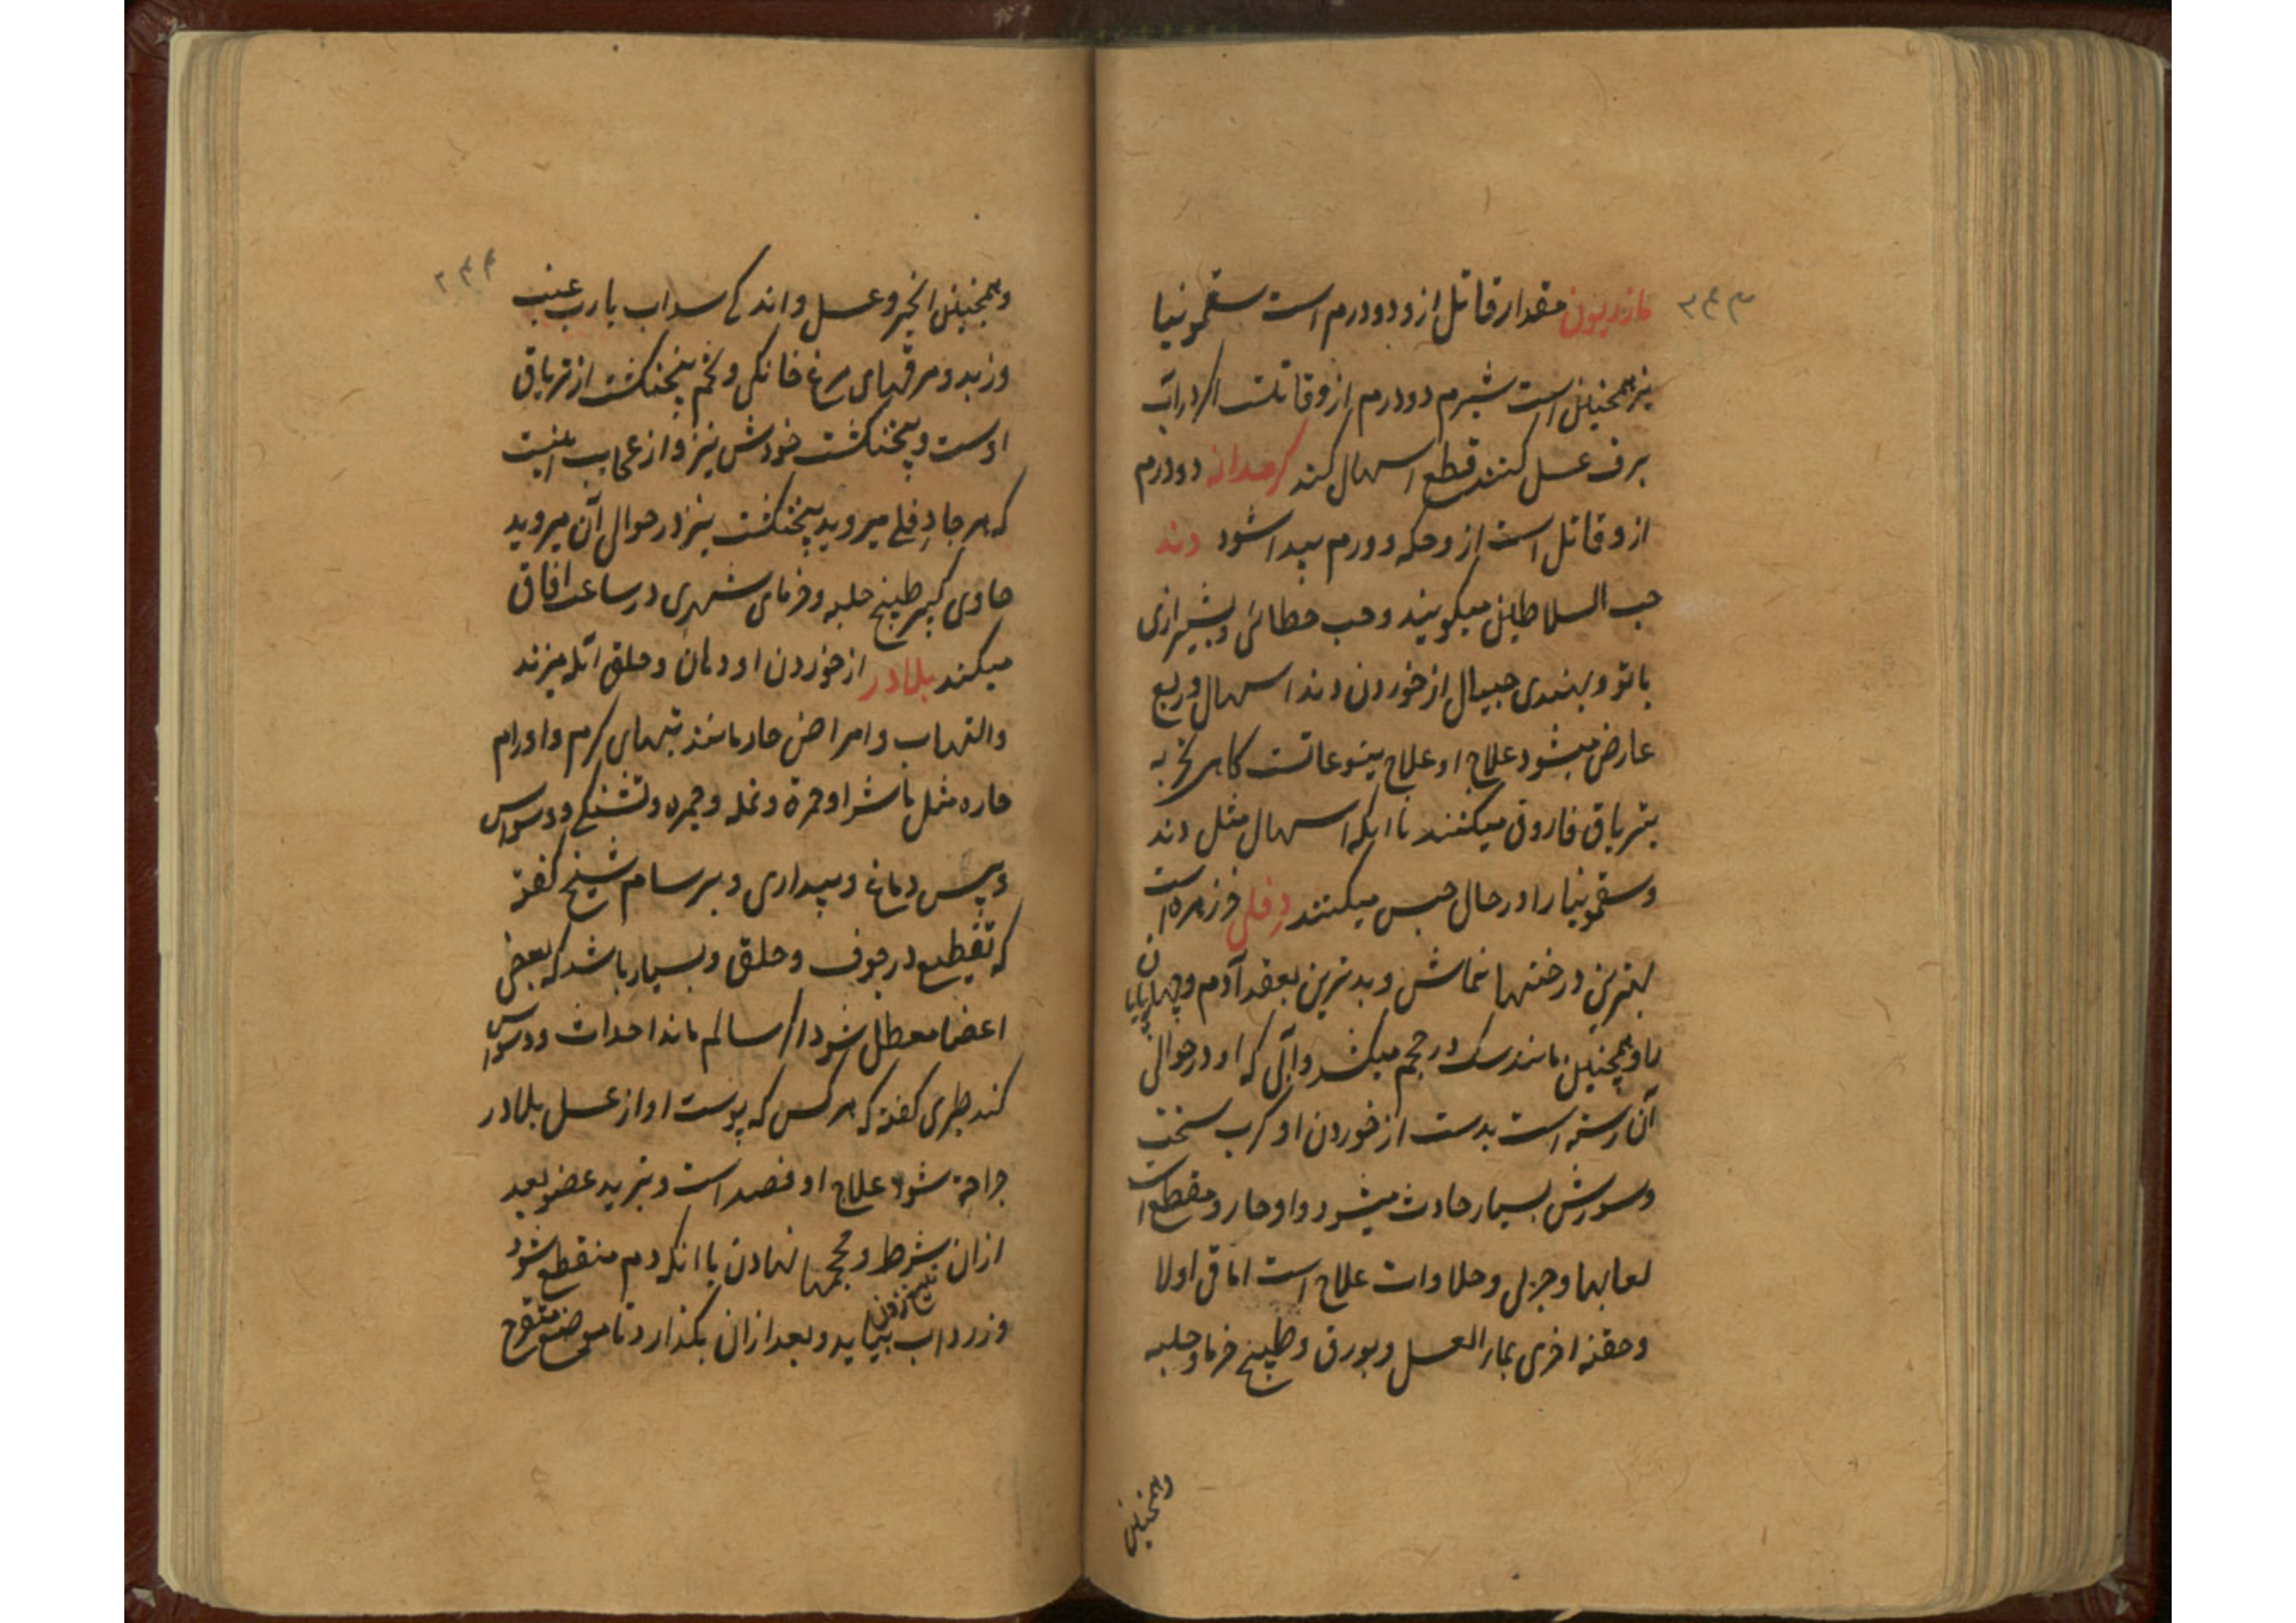 ۲۴۳
مازریون مقدار قاتل ازو دو درم است سقمونیا
نیز همچنین است شبرم دو درم ازو قاتلست اکر در آب
برف غسل کنند قطع اسهال کند کرمدانه دو درم
ازو قاتل است ازو حکه و ورم پیدا شود دند
حب السلاطین میکویند و حب خطائی و بشیرازی
باتو و بهندی جیپال از خوردن دند اسهال ذریع
عارض میشود علاج او علاج یتوعاتست کاهی تجربه
بتریاق فاروق میکنند تا انکه اسهال مثل دند
و سقمونیا را در حال حبس میکنند دِفلی خرزهره است
بهترین درختها نماش و بدترین بعقد آدم و چهارپایان
را و همچنین مانند سک در حجم میکشد و آبی که او در حوالی
آن رسته است بدست از خوردن او کرب سخت
و سوزش بسیار حادث میشود و او حار و مقطع است
لعابها و چربی و حلاوات علاج است اما قی اولا
و حقنه اخری بماء العسل و بورق و طبیخ خرما و حلبه
وهمچنین
۲۴۴
وهمچنین انجیر و عسل و اندکی سداب با رب عنب
و زبد و مرقهای مرغ خانکی و تخم پنجنکشت از تریاق
اوست و پنجنکشت خودش نیز و از عجایب اینست
که هر جا دِفلی میروید پنجنکشت نیز در حوالی آن میروید
حاوی کبیر طبیخ حلبه و خرمای شهری در ساعت افاق
میکنند بلادر از خوردن او دهان و حلق آبله میزند
و التهاب و امراض حار مانند تبهای کرم و اورام
حاره مثل ماشرا و حمرة و نمله و جمره و تشنکی و وسواس
و یبس دماغ و بیداری و برسام شیخ کفته
که تقطیع در جوف و حلق و بسیار باشد که بعض
اعضا معطل شود اکر سالم ماند احداث وسواس
کند طبری کفته که هر کس که پوست او از عسل بلادر
جراحة شود علاج او فصد است و تبرید عضو بعد
ازان شرط و محجمها نهادن با انکه دم منقطع شود
تیغ زدن
و زرداب بیاید و بعد ازان بکذارد تا موضع متقرح